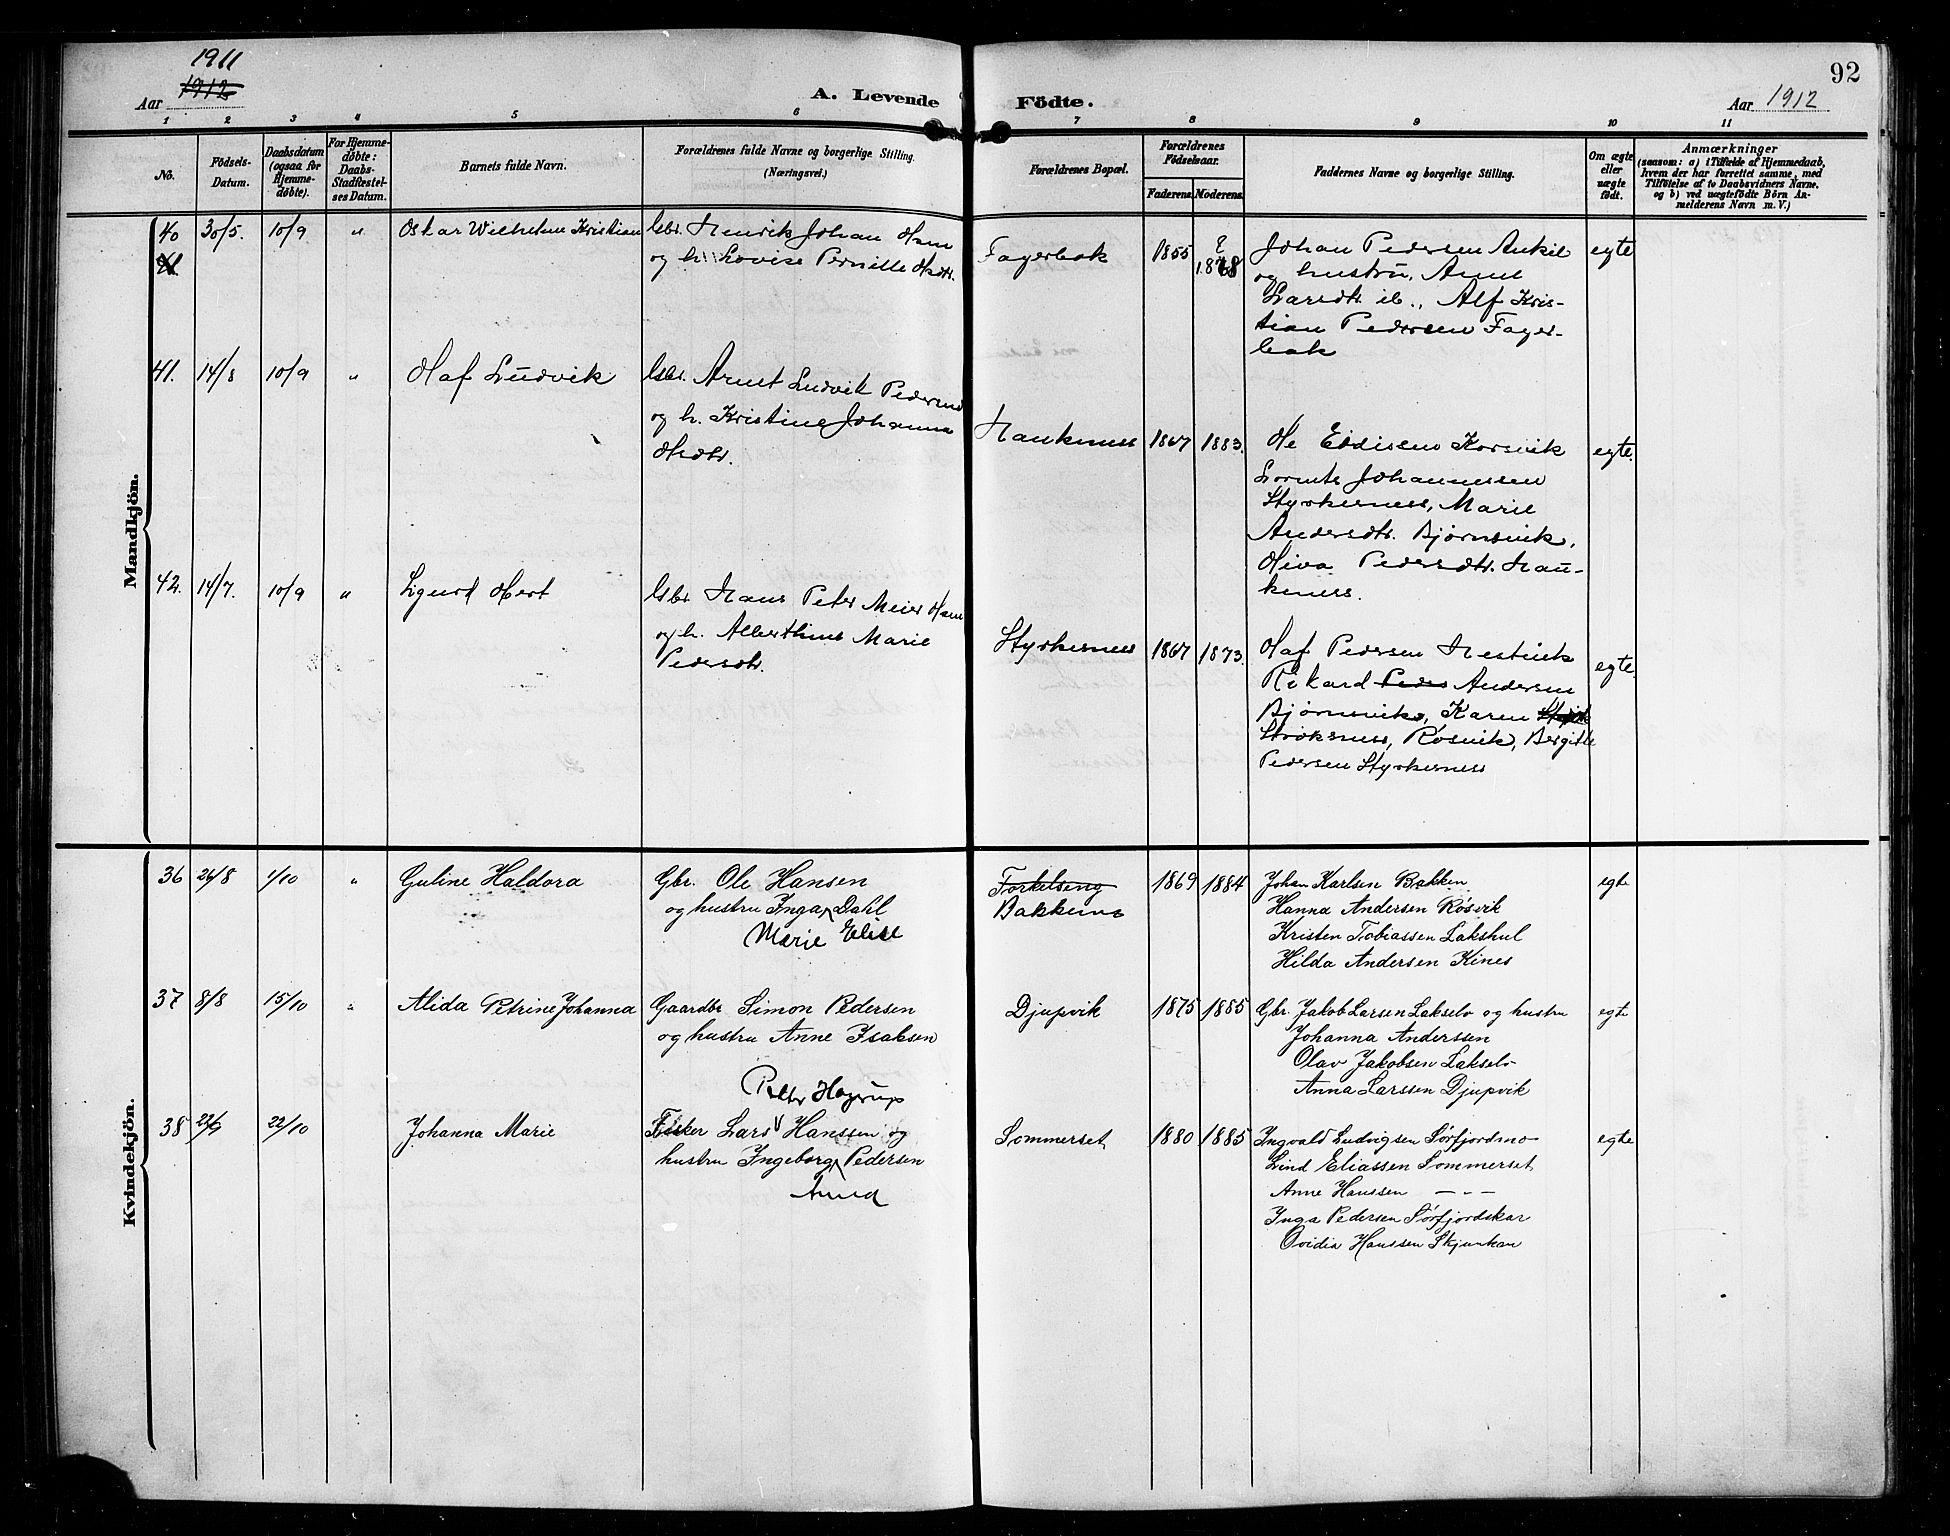 1911
Aar 1912
A. Levende Födte.
92
Aar 1912
1 2 3 4 5 6 7 8 9 10 11
No.
Födsels-
Datum.
Daabsdatum
(ogsaa för
Hjemme-
döbte).
For Hjemme-
döbte:
Daabs-
Stadfæstel-
ses Datum.
Barnets fulde Navn.
Forældrenes fulde Navne og borgerlige Stilling.
(Næringsvei.)
Forældrenes Bopæl.
Forældrenes
Födselsaar.
Faderens. Moderens.
Faddernes Navne og borgerlige Stilling.
Om ægte
eller
uægte
födt.
Anmærkninger
(saasom: a) i Tilfælde af Hjemmedaab,
hvem der har forrettet samme, med
Tilföielse af to Daabsvidners Navne,
og b) ved uægtefödte Börn An-
melderens Navn m. V.)
Mandkjön.
40 30/5. 10/9 " Oskar Wilhelm Kristian
Gbr. Henrik Johan Olsen
og h. Lovise Pernille Olsdtr.
Fagerbak 1855 1868
Johan Pedersen Ankil
og hustru, Anne
Larsdtr. ib., Alf Kris-
tian Pedersen Fager-
bak
egte
41. 14/8 10/9 " Olaf Ludvik
Gbr. Arnt Ludvik Pedersen
og h. Kristine Johanna
Olsdtr.
Haukness 1867 1883.
Ole Korsvik
Lornts Johannessen
Styrkesness, Marie
Andersdtr. Bjørnsvik,
Oliva Pedersdtr. Hau-
kness.
egte.
42. 14/7. 10/9 " Sigurd
Gbr. Hans Peter Meier Olsen
og h. Alberthine Marie
Pedersdtr.
Styrkesness 1867 1873.
Olaf Pedersen Hestvik
Rikard Andersen
Bjørnsvik, Karen
Røsvik, Bergitte
Pedersen Styrkesness
egte.
Kvindekjön.
36 26/8 1/10 " Guline Haldora
Gbr. Ole Hansen
og hustru Inga Dahl
Marie Elise
Forkelseng
Bakken
1869 1884
Johan Karlsen Bakken
Hanna Andersen Røsvik
Kristen Tobiassen Lakshul
Hilda Andersen Kines
egte
37 8/8 15/10 " Alida Petrine Johanna
Gaardbr Simon Pedersen
og hustru Anne Isaksen
Djupvik 1875 1885
Gbr. Jakob Larsen Lakselv og hustru
Johanna Anderssen
Olav Jakobsen Lakselv
Anna Larssen Djupvik
egte
Peter Hagerup
38 22/10 Johanna Marie
Fisker Lars Hanssen og
hustru Ingeborg Pedersen
Sommerset 1880 1885
Ingvald Ludvigsen Sørfjordmo
Lind Eliassen Sommerset
Anne Hanssen — - —
Inga Pedersen Sørfjordskar
Ovidia Hanssen
egte